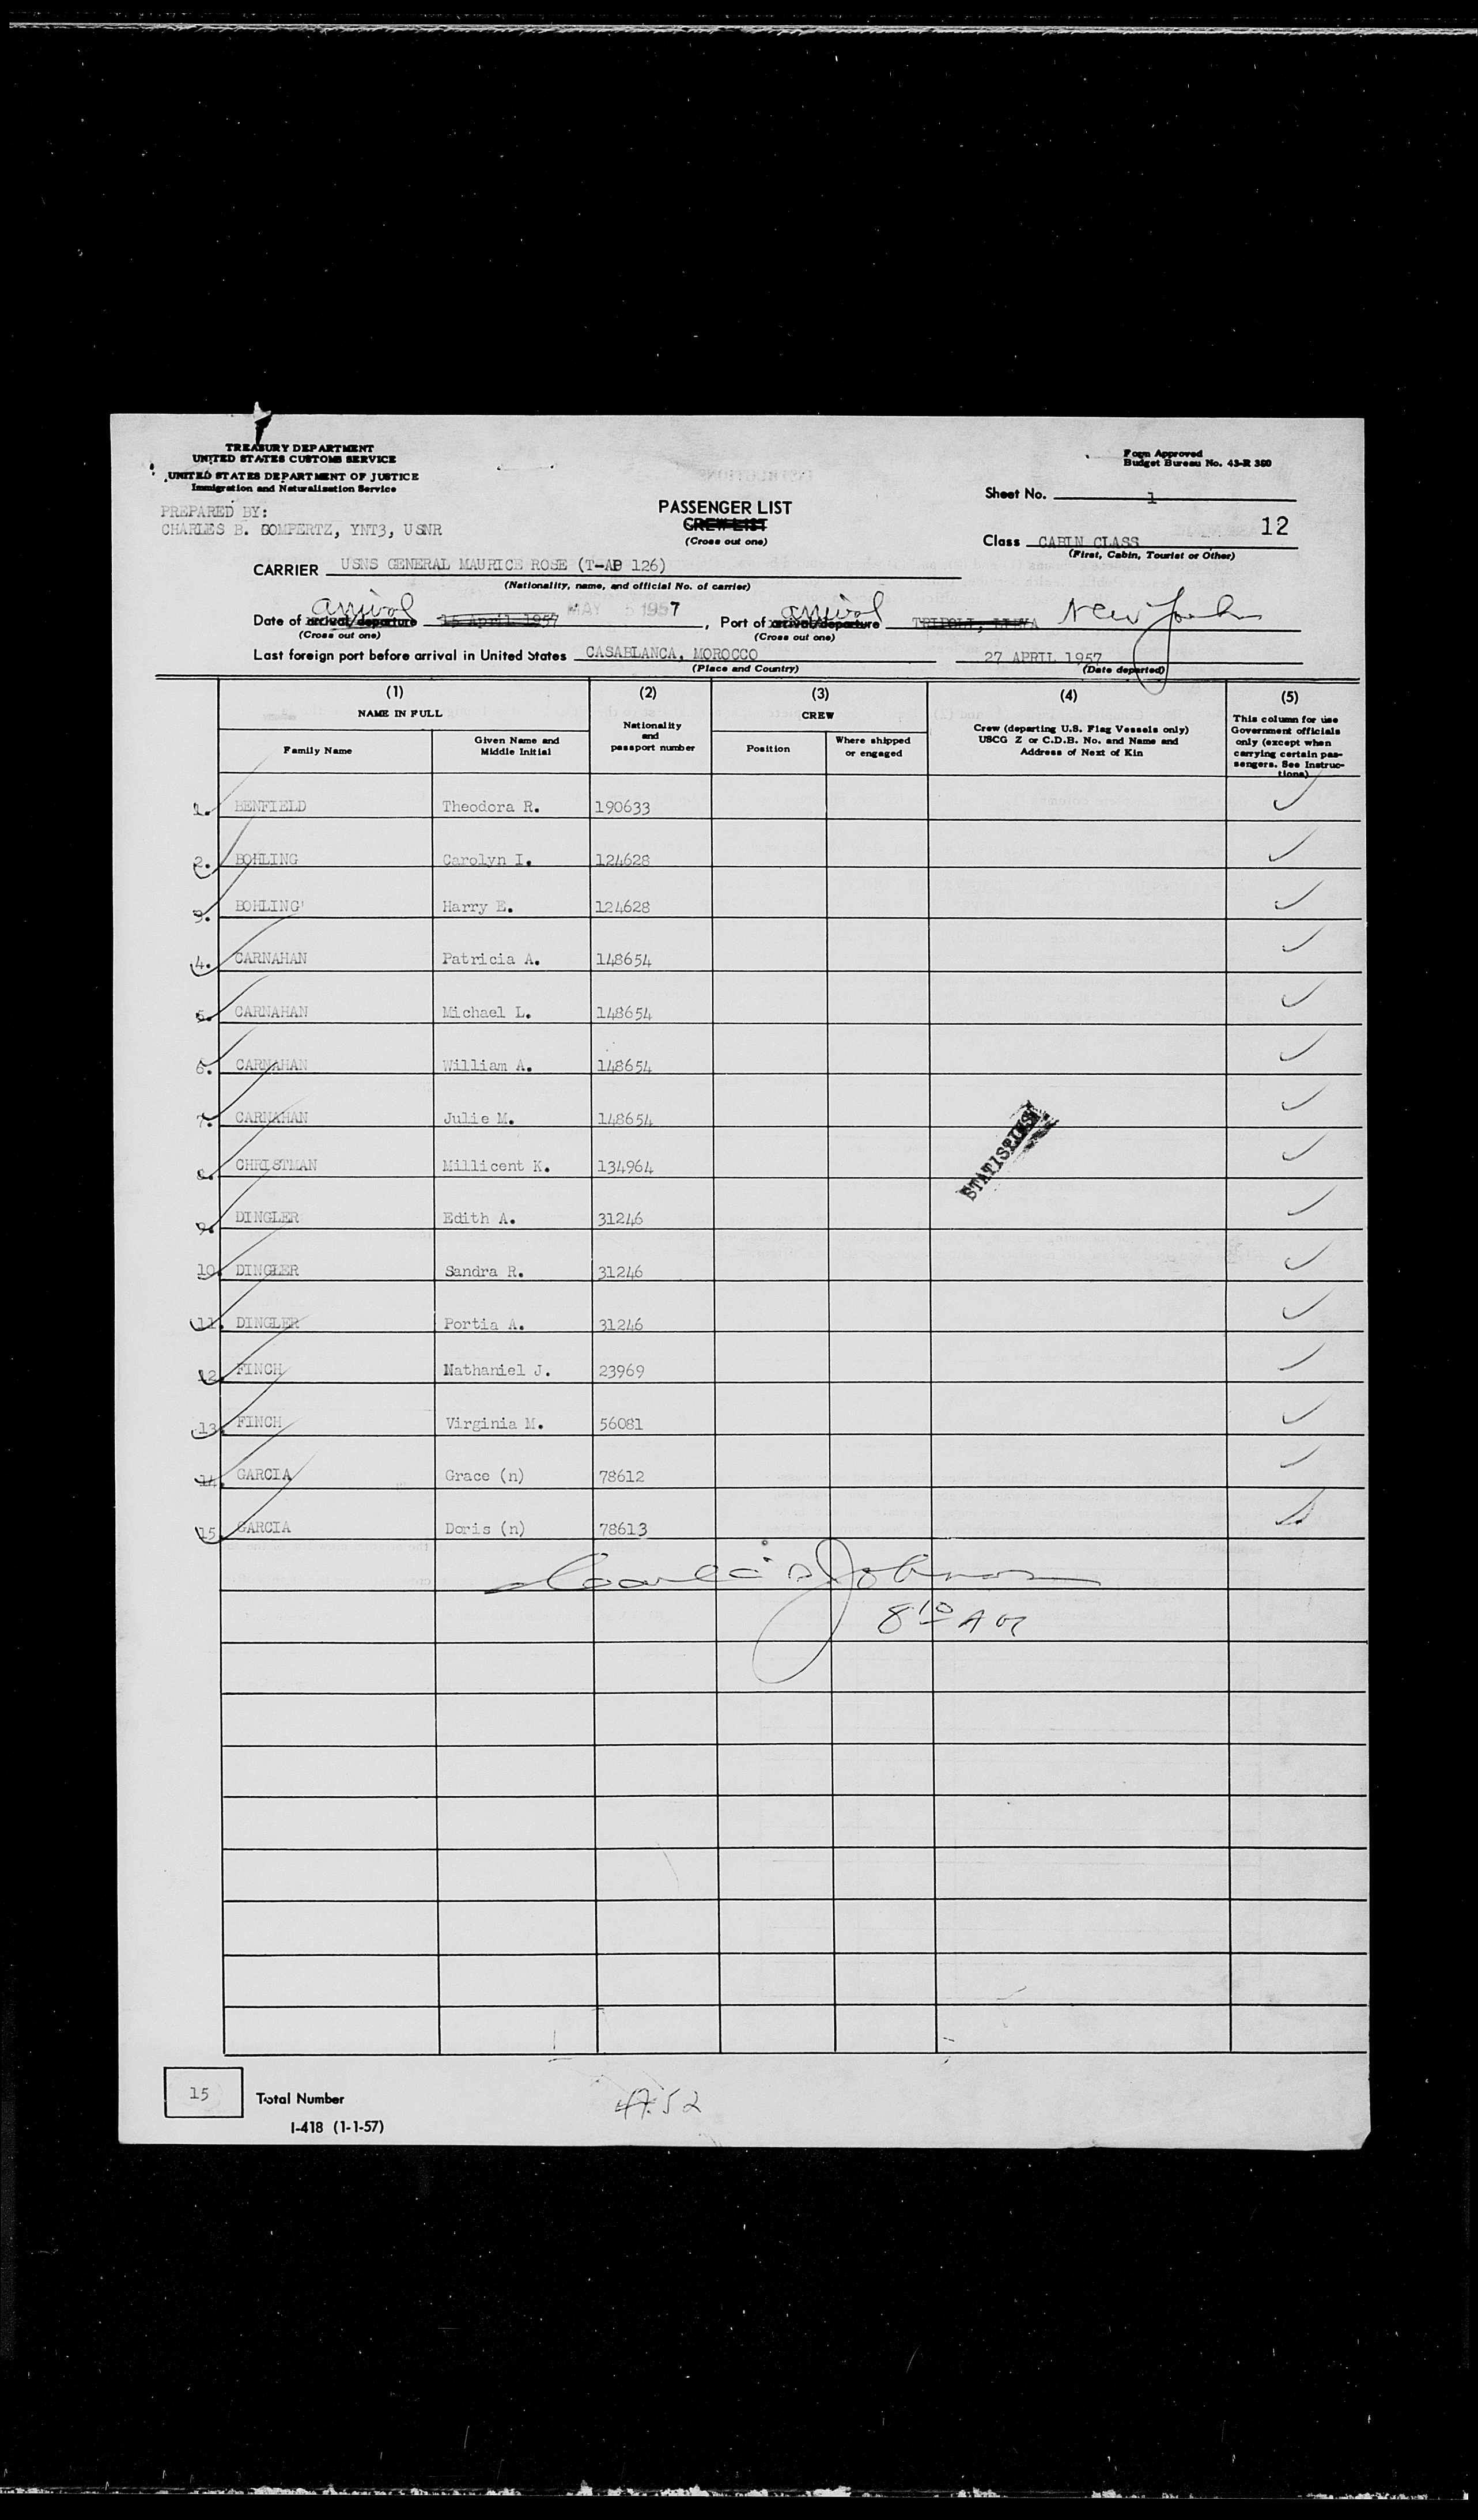 TREASURY DEPARTMENT
UNITED STATES CUSTOMS SERVICE
UNITED STATES DEPARTMENT OF JUSTICE
Immigration and Naturalization Service
Form Approved
Budget Bureau No. 43-R 380
PREPARED BY:
CHARLES B. GOMPERTZ, YNT3, USNR
PASSENGER LIST
CREW LIST
(Cross out one)
Sheet No. 1
12
Class CABIN CLASS
(First, Cabin, Tourist or Other)
CARRIER USNS GENERAL MAURICE ROSE (T-AP 126)
(Nationality, name, and official No. of carrier)
arrival arrival
Date of arrival/departure 15 April 1957 MAY 5 1957, Port of arrival/departure TRIPOLI, LIBYA New York
(Cross out one) (Cross out one)
Last foreign port before arrival in United States CASABLANCA, MOROCCO 27 APRIL 1957
(Place and Country) (Date departed)
(1) (2) (3) (4) (5)
NAME IN FULL
Family Name
Given Name and Middle Initial
Nationality and passport number
CREW
Position
Where shipped or engaged
Crew (departing U.S. Flag Vessels only)
USCG Z or C.D.B. No. and Name and
Address of Next of Kin
This column for use
Government officials
only (except when
carrying certain pas-
sengers. See Instruc-
tions)
1. BENFIELD Theodora R. 190633
2. BOHLING Carolyn I. 124628
3. BOHLING Harry E. 124628
4. CARNAHAN Patricia A. 148654
5. CARNAHAN Michael L. 148654
6. CARNAHAN William A. 148654
7. CARNAHAN Julie M. 148654
8. CHRISTMAN Millicent K. 134964
STATISTICS
9. DINGLER Edith A. 31246
10. DINGLER Sandra R. 31246
11. DINGLER Portia A. 31246
12. FINCH Nathaniel J. 23969
13. FINCH Virginia M. 56081
14. GARCIA Grace (n) 78612
15. GARCIA Doris (n) 78613
Johnson
8 10 AM
15 Total Number
I-418 (1-1-57)
52